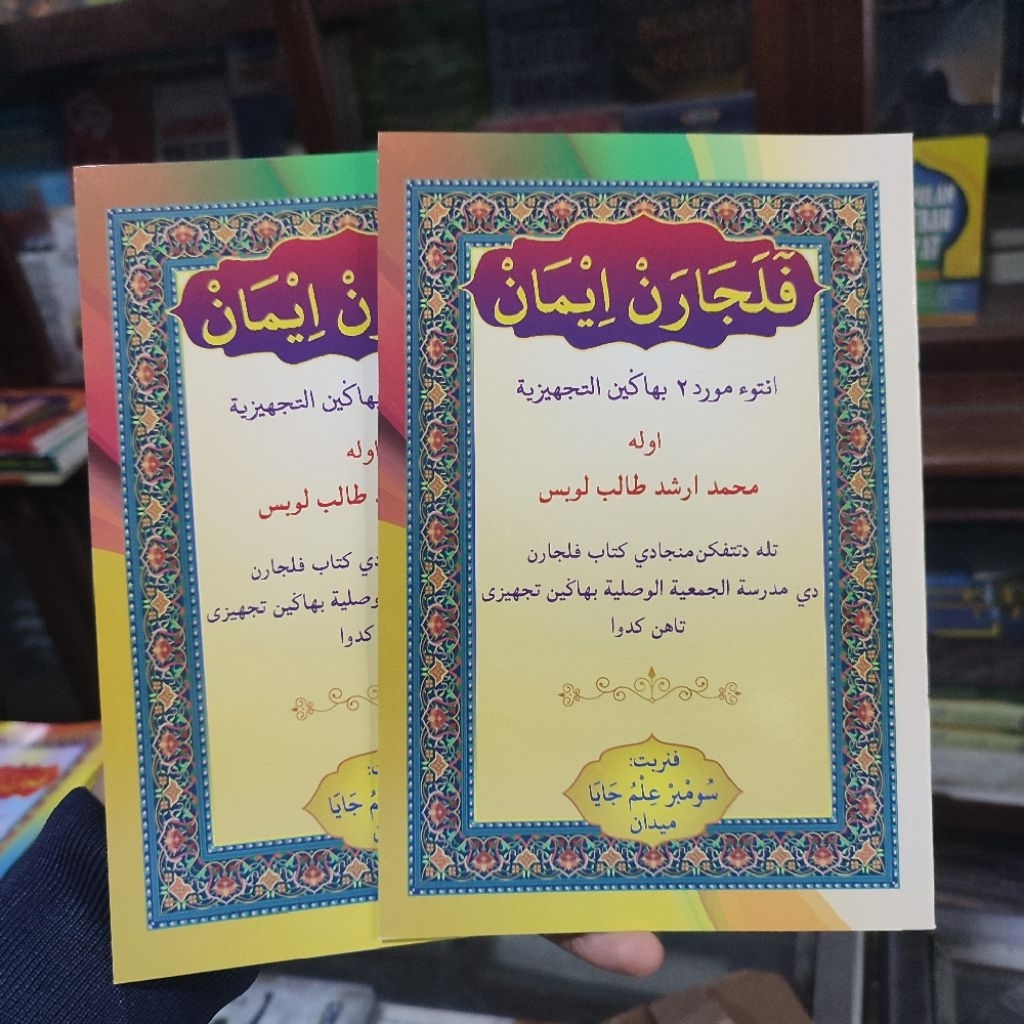 فَلَجَارَنْ اِيْمَانْ
انتوء مورد ٢ بهاݢين التجهيزية
اوله
محمد ارشد طالب لوبس
تله دتتفكن منجادي كتاب فلجارن
دي مدرسة الجمعية الوصلية بهاݢين تجهيزى
تاهن كدوا
فنربت:
سُومْبَرْ عِلْمُ جَايَا
ميدان
نْ اِيْمَانْ
بهاݢين التجهيزية
اوله
طالب لوبس
دي كتاب فلجارن
وصلية بهاݢين تجهيزى
كدوا
مُ جَايَا